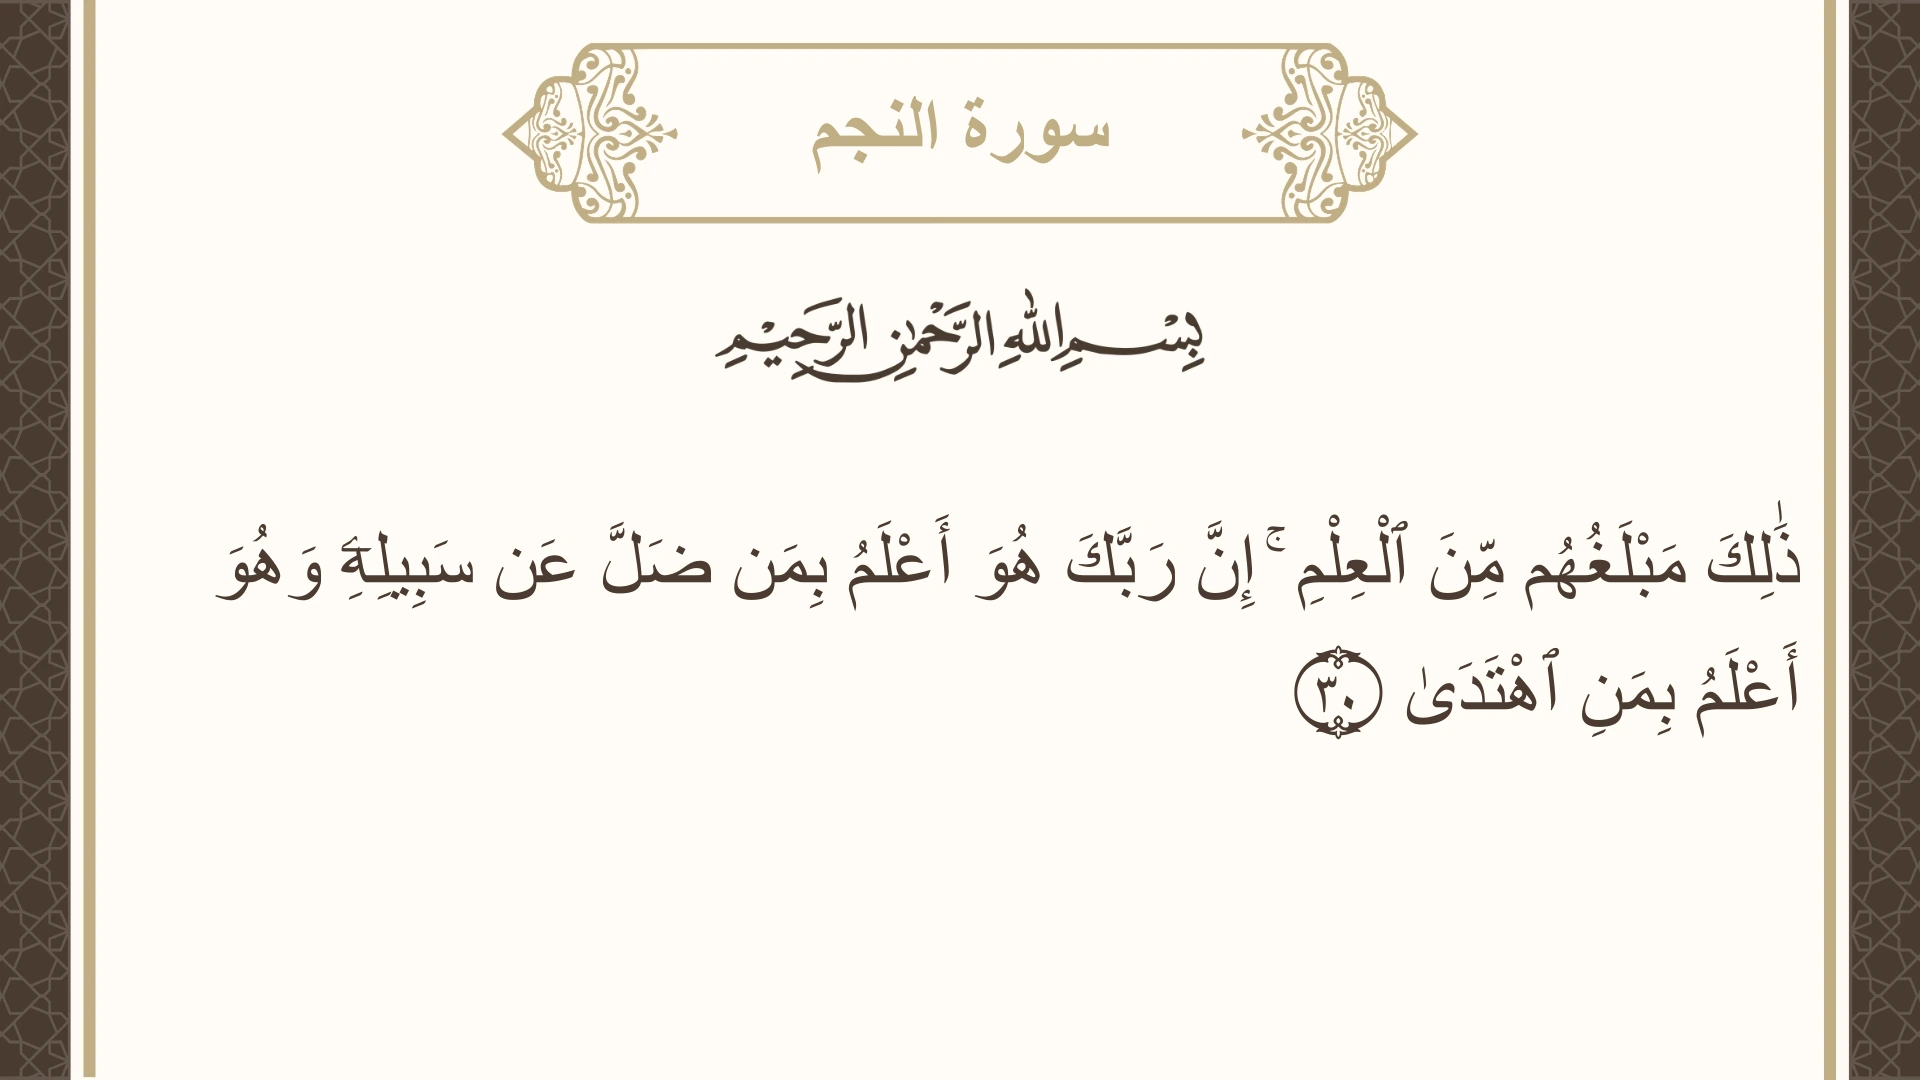 سورة النجم
بِسْمِ اللهِ الرَّحْمٰنِ الرَّحِيْمِ
ذَٰلِكَ مَبْلَغُهُم مِّنَ ٱلْعِلْمِ ۚ إِنَّ رَبَّكَ هُوَ أَعْلَمُ بِمَن ضَلَّ عَن سَبِيلِهِۦ وَهُوَ
أَعْلَمُ بِمَنِ ٱهْتَدَىٰ ٣٠